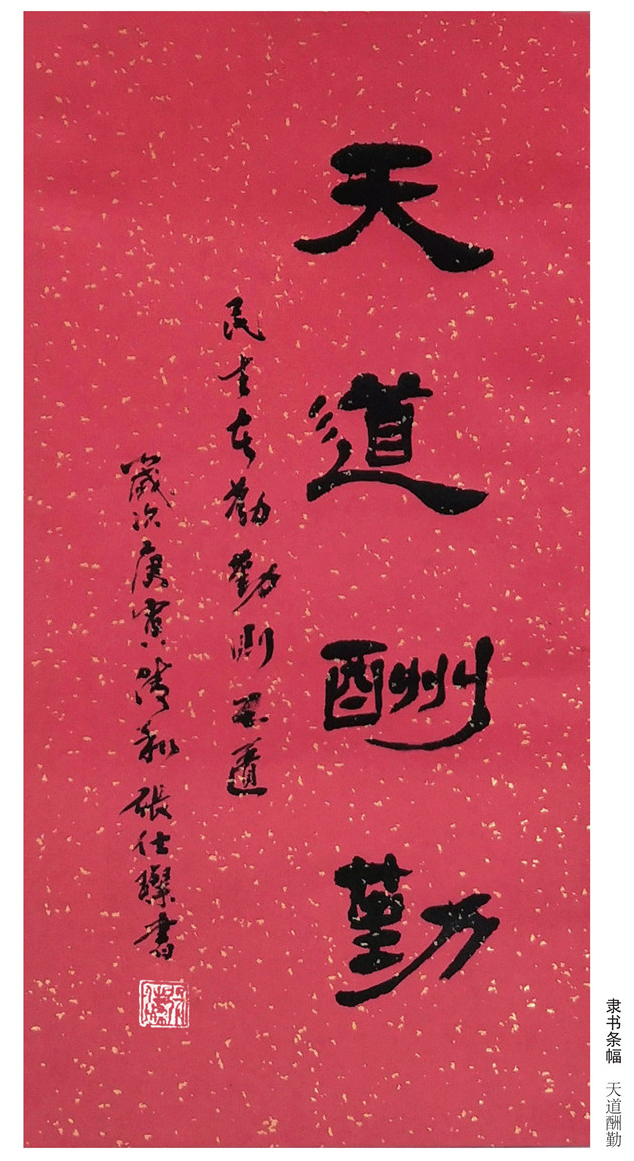 天道酬勤
民生在勤勤则不匮
歲次庚寅清和張仕璨書
隶书条幅 天道酬勤